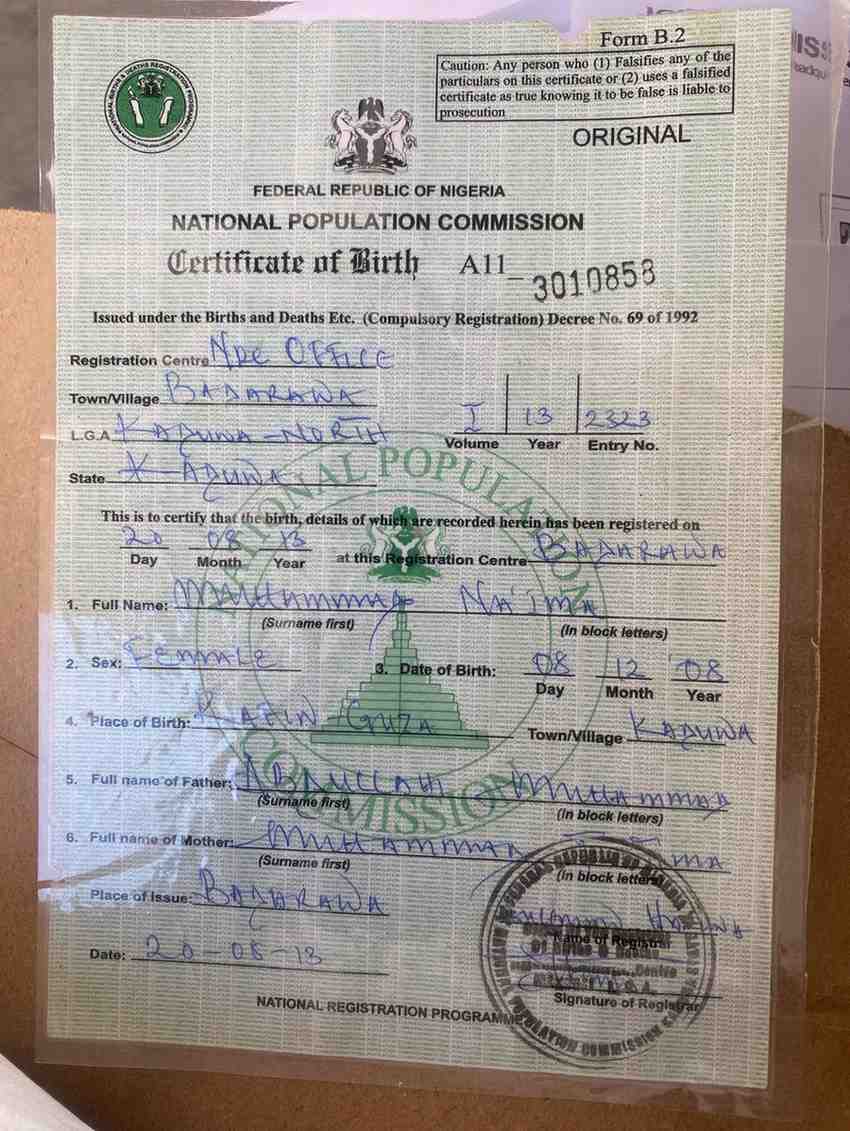 Form B.2
Caution: Any person who (1) Falsifies any of the
particulars on this certificate or (2) uses a falsified
certificate as true knowing it to be false is liable to
prosecution
ORIGINAL
FEDERAL REPUBLIC OF NIGERIA
NATIONAL POPULATION COMMISSION
Certificate of Birth A11_ 3010858
Issued under the Births and Deaths Etc. (Compulsory Registration) Decree No. 69 of 1992
Registration Centre NPC OFFICE
Town/Village BADARAWA
L.G.A KADUNA-NORTH
I 13 2323
Volume Year Entry No.
State KADUNA
NATIONAL POPULATION COMMISSION
This is to certify that the birth, details of which are recorded herein has been registered on
20 08 13 at this Registration Centre BADARAWA
Day Month Year
1. Full Name: MUHAMMAD NA'IMA
(Surname first) (In block letters)
2. Sex: FEMALE 3. Date of Birth: 08 12 08
Day Month Year
4. Place of Birth: RAFIN GUZA Town/Village KADUNA
5. Full name of Father: ABDULLAHI MUHAMMAD
(Surname first) (In block letters)
6. Full name of Mother: MUHAMMAD
(Surname first) (In block letters)
Place of Issue: BADARAWA
Name of Registrar
Date: 20-08-13
Signature of Registrar
NATIONAL REGISTRATION PROGRAMME